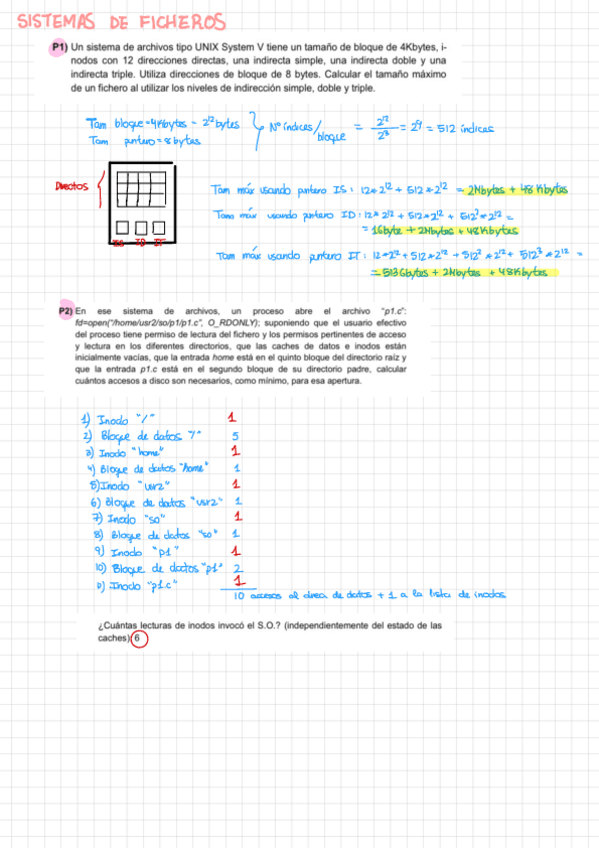 SISTEMAS DE FICHEROS
P1) Un sistema de archivos tipo UNIX System V tiene un tamaño de bloque de 4Kbytes, i-
nodos con 12 direcciones directas, una indirecta simple, una indirecta doble y una
indirecta triple. Utiliza direcciones de bloque de 8 bytes. Calcular el tamaño máximo
de un fichero al utilizar los niveles de indirección simple, doble y triple.
Tam bloque = 4Kbytes = 2^12 bytes
Tam puntero = 8 bytes
Nº índices/bloque = 2^12/2^3 = 2^9 = 512 índices
Directos
IS ID IT
Tam máx usando puntero IS: 12*2^12 + 512*2^12 = 2Mbytes + 48Kbytes
Tam máx usando puntero ID: 12*2^12 + 512*2^12 + 512^2*2^12 =
= 1Gbyte + 2Mbytes + 48Kbytes
Tam máx usando puntero IT: 12*2^12 + 512*2^12 + 512^2*2^12 + 512^3*2^12 =
= 513Gbytes + 2Mbytes + 48Kbytes
P2) En ese sistema de archivos, un proceso abre el archivo "p1.c":
fd=open("/home/usr2/so/p1/p1.c", O_RDONLY); suponiendo que el usuario efectivo
del proceso tiene permiso de lectura del fichero y los permisos pertinentes de acceso
y lectura en los diferentes directorios, que las caches de datos e inodos están
inicialmente vacías, que la entrada home está en el quinto bloque del directorio raíz y
que la entrada p1.c está en el segundo bloque de su directorio padre, calcular
cuántos accesos a disco son necesarios, como mínimo, para esa apertura.
1) Inodo "/" 1
2) Bloque de datos "/" 5
3) Inodo "home" 1
4) Bloque de datos "home" 1
5) Inodo "usr2" 1
6) Bloque de datos "usr2" 1
7) Inodo "so" 1
8) Bloque de datos "so" 1
9) Inodo "p1" 1
10) Bloque de datos "p1" 2
11) Inodo "p1.c" 1
10 accesos al area de datos + 1 a la lista de inodos
¿Cuántas lecturas de inodos invocó el S.O.? (independientemente del estado de las
caches) 6